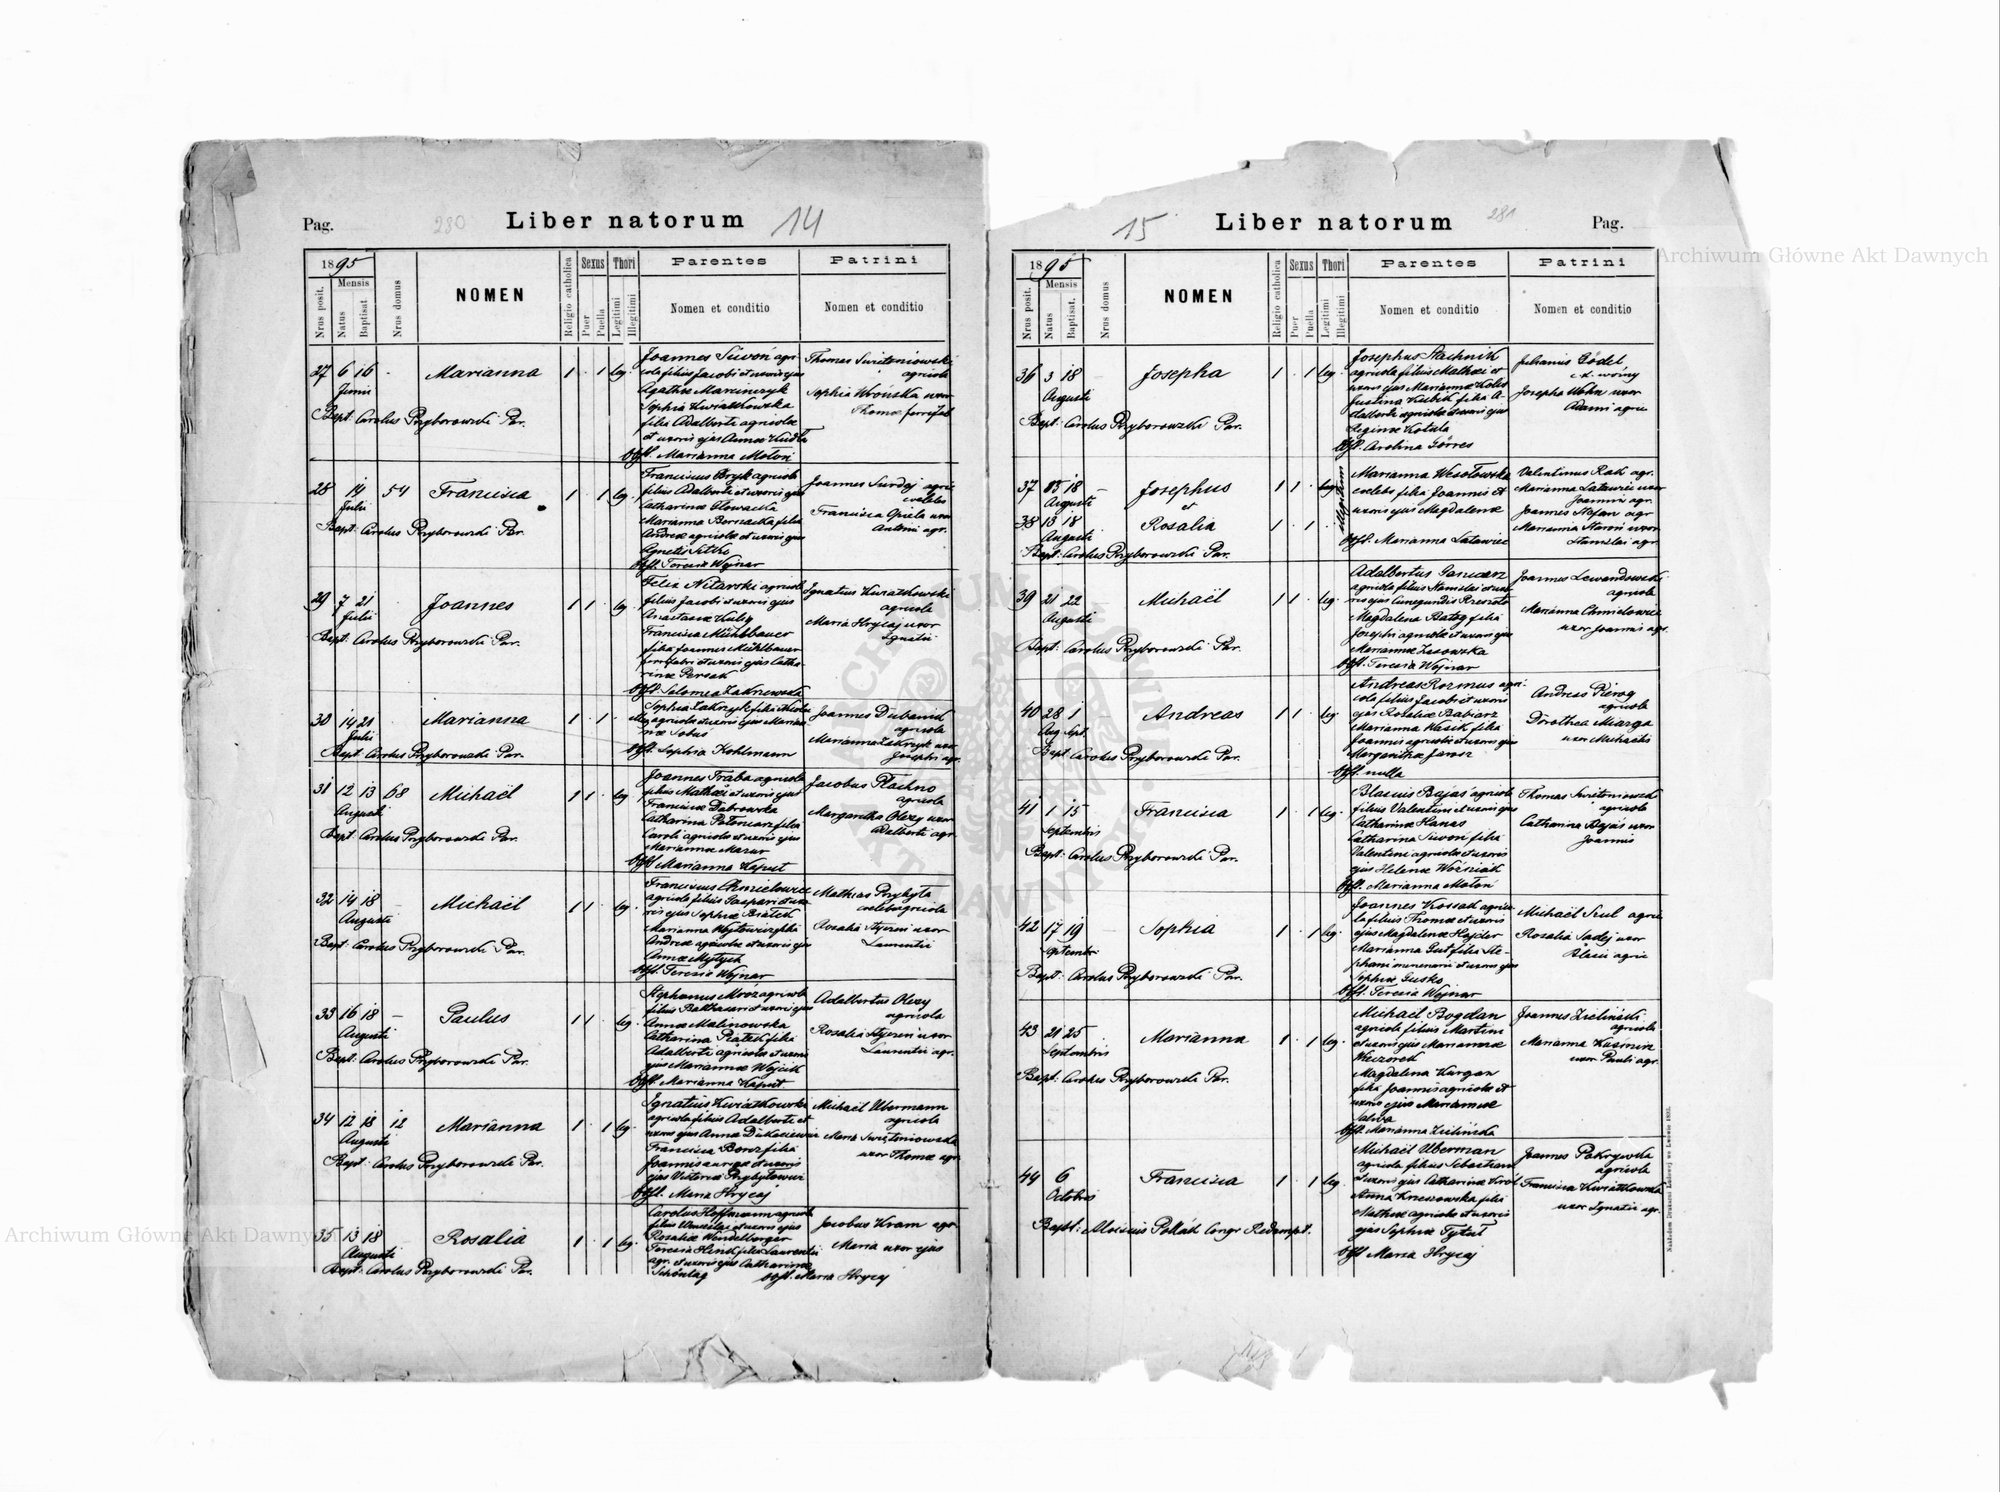 Pag.
230
Liber natorum
14
1895
Nrus posit.
Mensis
Natus
Baptisat
Nrus domus
NOMEN
Religio catholica
Sexus
Puer
Puella
Thori
Legitimi
Illegitimi
Parentes
Nomen et conditio
Patrini
Nomen et conditio
27 6 16 Marianna 1 1 leg.
Junii
Bapt: Carolus Przyborowski Par.
Joannes Siwoń agri-
cola filius Jacobi et uxoris ejus
Agathæ Marcinczyk
Sophia Kwiatkowska
filia Adalberti agricolæ
et uxoris ejus Annæ
Obst. Marianna Motoń
Thomas Świetoniowski
agricola
Sophia Wrońska uxor
Thomæ
28 14 54 Francisca 1 1 leg.
Julii
Bapt: Carolus Przyborowski Par.
Franciscus Bryk agricola
filius Adalberti et uxoris ejus
Catharinæ Głowacka
Marianna Bernacka filia
Andreæ agricolæ et uxoris ejus
Agnetis
Obst. Teresia Wojnar
Joannes Surdej agric.
cælebs
Francisca Opiela uxor
Antoni agr.
29 7 21 Joannes 1 1 leg.
Julii
Bapt: Carolus Przyborowski Par.
Felix Nitarski agricola
filius Jacobi et uxoris ejus
Anastasiæ Kulig
Francisca Mühlbauer
filia Joannes Mühlbauer
ferrifabri et uxoris ejus Catha-
rinæ Persak
Obst. Salomea Zakrzewska
Ignatius Kwiatkowski
agricola
Maria Hrycaj uxor
Ignatii
30 14 21 Marianna 1 1
Julii
Bapt: Carolus Przyborowski Par.
Sophia Zakrzyk filia
agricolæ et uxoris ejus Marian-
næ Sobas
Obst. Sophia Kohlmann
Joannes Dubaniк
agricola
Marianna Zakrzyk uxor
Josephi agr.
31 12 13 68 Michaël 1 1 leg
Augusti
Bapt: Carolus Przyborowski Par.
Joannes Traba agricola
filius Mathæi et uxoris ejus
Franciscæ Dąbrowska
Catharina filia
Caroli agricolæ et uxoris ejus
Mariannæ Mazur
Obst Marianna Kaput
Jacobus Płachno
agricola
Margaritha Olexy uxor
Adalberti agr.
32 14 18 Michaël 1 1 leg.
Augusti
Bapt: Carolus Przyborowski Par.
Franciscus Chmielowiec
agricola filius Gaspari et uxo-
ris ejus Sophiæ Bratek
Marianna Wojtowicz filia
Andreæ agricolæ et uxoris ejus
Annæ Mytych
Obst. Teresia Wojnar
Mathias Przybyła
cælebs agricola
Rosalia uxor
Laurentii
33 16 18 Paulus 1 1 leg.
Augusti
Bapt: Carolus Przyborowski Par.
Stephanus Mróz agricola
filius Balthasari et uxoris ejus
Annæ Malinowska
Catharina Piątek filia
Adalberti agricolæ et uxoris
ejus Mariannæ Wojcik
Obst. Marianna Kaput
Adalbertus Olexy
agricola
Rosalia uxor
Laurentii agr.
34 12 18 12 Marianna 1 1 leg
Augusti
Bapt: Carolus Przyborowski Par.
Ignatius Kwiatkowski
agricola filius Adalberti et
uxoris ejus Anna
Francisca Boroz filia
Joannis et uxoris
ejus Victoriæ
Obst. Maria Hrycaj
Michaël Ubermann
agricola
Maria Świętoniowska
uxor Thomæ agr.
35 13 18 Rosalia 1 1 leg
Augusti
Bapt: Carolus Przyborowski Par.
Carolus Hoffmann agricola
filius Wenzelai et uxoris ejus
Rosaliæ Wendelberger
Teresia Henk filia Laurentii
agr. et uxoris ejus Catharinæ
Schöntag Obst. Maria Hrycaj
Jacobus Kram agr.
Maria uxor ejus
15
Liber natorum
281
Pag.
1895
Nrus posit.
Mensis
Natus
Baptisat.
Nrus domus
NOMEN
Religio catholica
Sexus
Puer
Puella
Thori
Legitimi
Illegitimi
Parentes
Nomen et conditio
Patrini
Nomen et conditio
36 3 18 Josepha 1 1 leg.
Augusti
Bapt: Carolus Przyborowski Par.
Josephus Stachnik
agricola filius Mathæi et
uxoris ejus Mariannæ
Justina Kubik filia A-
dalberti agricolæ et uxoris ejus
Reginæ Kotula
Obst. Carolina Görres
Julianus Gödel
Josepha Wohn uxor
Adami agric
37 13 18 – Josephus 1 1
Augusti et
38 13 18 Rosalia 1 1
Augusti
Bapt: Carolus Przyborowski Par.
illegitimi
Marianna Wesołowska
cælebs filia Joannis et
uxoris ejus Magdalenæ
Obst. Marianna Latawiec
Valentinus Rak agr.
Marianna Latawiec uxor
Joannis agr.
Joannes Stefan agr
Marianna Staroń uxor
Stanislai agr.
39 21 22 Michaël 1 1 leg.
Augusti
Bapt: Carolus Przyborowski Par.
Adalbertus Gancarz
agricola filius Stanislai et uxo-
ris ejus Cunegundis
Magdalena Batog filia
Josephi agricolæ et uxoris ejus
Mariannæ Lasowska
Obst. Teresia Wojnar
Joannes Lewandowski
agricola
Marianna Chmielowiec
uxor Joannis agr.
40 28 1 Andreas 1 1 leg.
Aug. Sept.
Bapt Carolus Przyborowski Par.
Andreas Rozmus agri-
cola filius Jacobi et uxoris
ejus Rosaliæ Babiarz
Marianna Wasik filia
Joannis agricolæ et uxoris ejus
Margarithæ Jarosz
Obst. nulla
Andreas Pieróg
agricola
Dorothea Miarga
uxor Michaelis
41 1 15 Francisca 1 1 leg.
Septembris
Bapt: Carolus Przyborowski Par.
Blasius Bajas agricola
filius Valentini et uxoris ejus
Catharinæ Hanas
Catharina Siwoń filia
Valentini agricolæ et uxoris
ejus Helenæ Woźniak
Obst. Marianna Motoń
Thomas Świetoniowski
agricola
Catharina Bajas uxor
Joannis
42 17 19 Sophia 1 1 leg.
Septembris
Bapt: Carolus Przyborowski Par.
Joannes Kossak agrico-
la filius Thomæ et uxoris
ejus Magdalenæ Hajder
Marianna Gut filia Ste-
phani et uxoris ejus
Sophiæ Guśko
Obst. Teresia Wojnar
Michaël Szul agric
Rosalia Sadej uxor
Blasii agric
43 21 25 Marianna 1 1 leg.
Septembris
Bapt: Carolus Przyborowski Par.
Michaël Bogdan
agricola filius Martini
et uxoris ejus Mariannæ
Wieczorek
Magdalena Kurgan
filia Joannis agricolæ et
uxoris ejus Mariannæ
Salwa
Obst. Marianna Zielińska
Joannes Zieliński
agricola
Marianna Kuśnierz
uxor Pauli agr.
44 6 Francisca 1 1 leg.
Octobris
Bapt: Aloisius Polłák Congr. Redempt.
Michaël Uberman
agricola filius Sebastiani
et uxoris ejus Catharinæ Król
Anna filia
Mathæi agricolæ et uxoris
ejus Sophiæ Tytuł
Obst Maria Hrycaj
Joannes Pokrywka
agricola
Francisca Kwiatkowska
uxor Ignatii agr.
Nakładem Drukarni Ludowej we Lwowie 1892.
Archiwum Główne Akt Dawnych
Archiwum Główne Akt Dawnych
ARCHIWUM GŁÓWNE AKT DAWNYCH